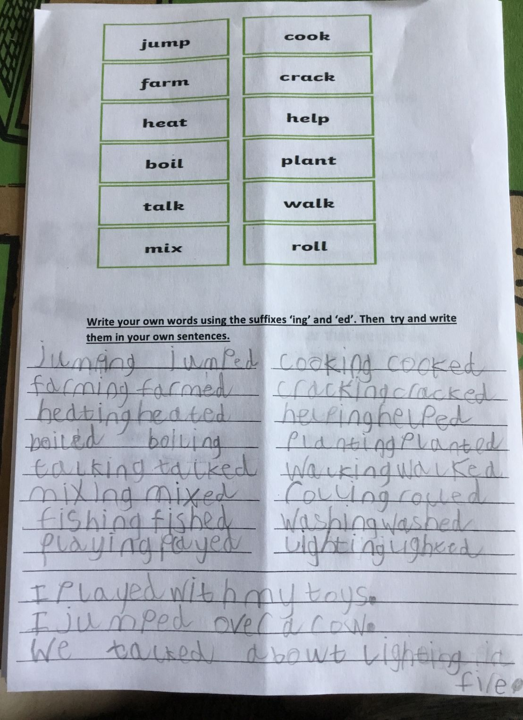 jump cook
farm crack
heat help
boil plant
talk walk
mix roll
Write your own words using the suffixes ‘ing’ and ‘ed’. Then try and write
them in your own sentences.
jumping jumped cooking cooked
farming farmed cracking cracked
heating heated helping helped
boiled boiling planting planted
talking talked walking walked
mixing mixed rolling rolled
fishing fished washing washed
playing payed lighting
I played with my toys.
I jumped over a cow.
We talked about lighting in
file.